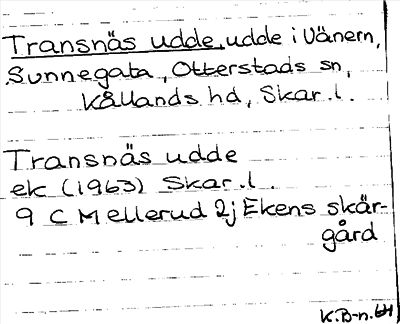 Transnäs udde, udde i Vänern,
Sunnegata, Otterstads sn,
Kållands hd, Skar. l.
Transnäs udde
ek (1963) Skar. l.
9 C Mellerud 2j Ekens skär-
gård
K. B-n. 64